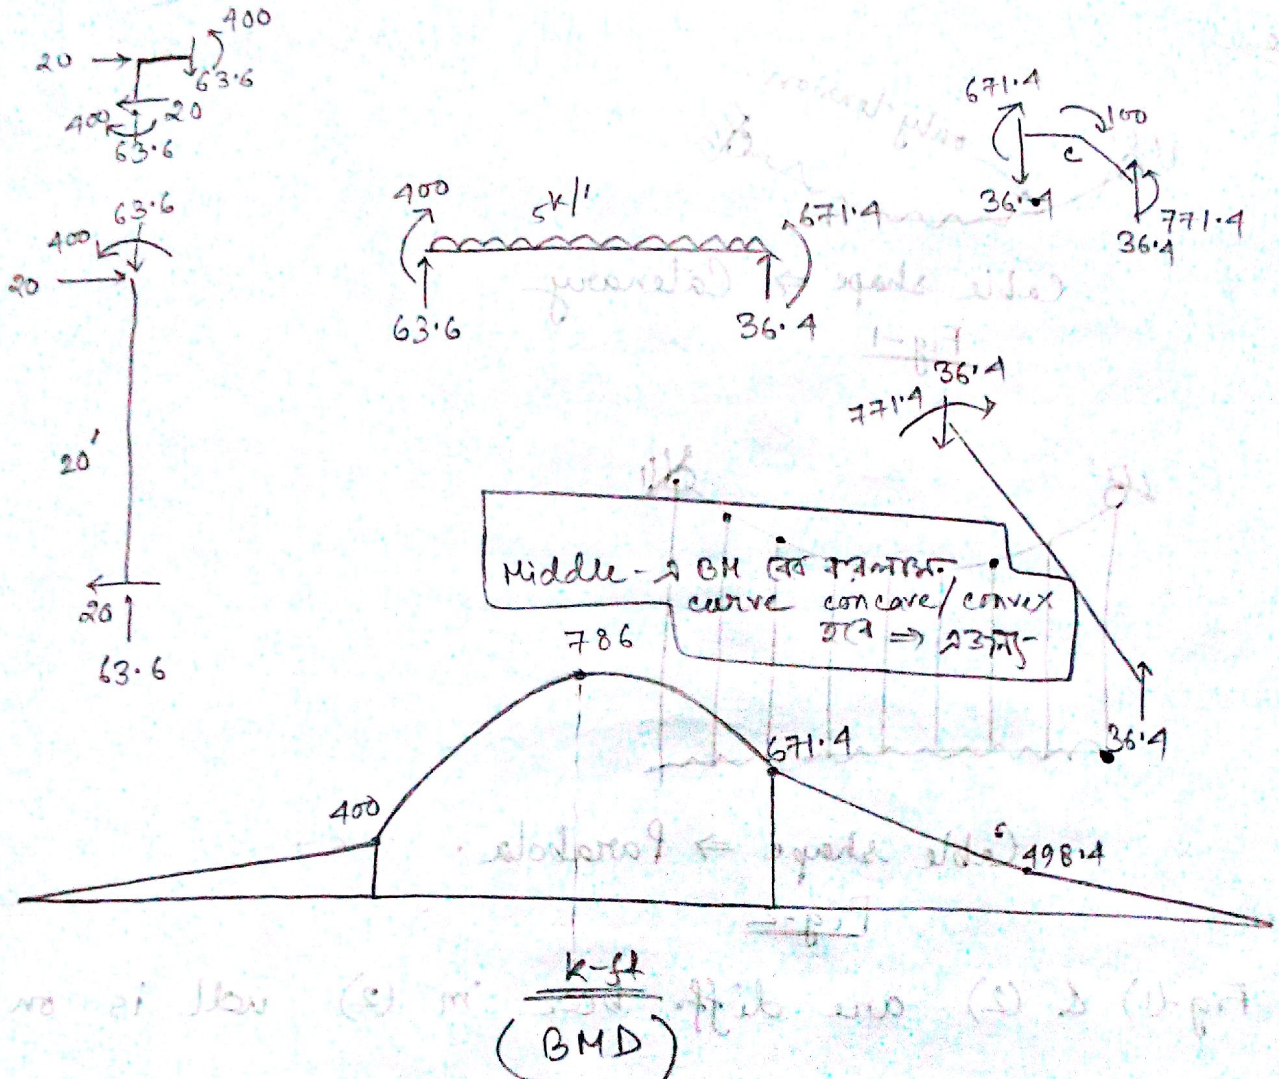 400
20
63.6
20
400
63.6
63.6
400
20
20'
20
63.6
400
5k/'
671.4
63.6
36.4
671.4
100
c
36.4
771.4
36.4
36.4
771.4
36.4
Middle-এ BM বের করলাম,
curve concave/convex
হবে ⇒ এজন্য
786
400
671.4
498.4
k-ft
(BMD)